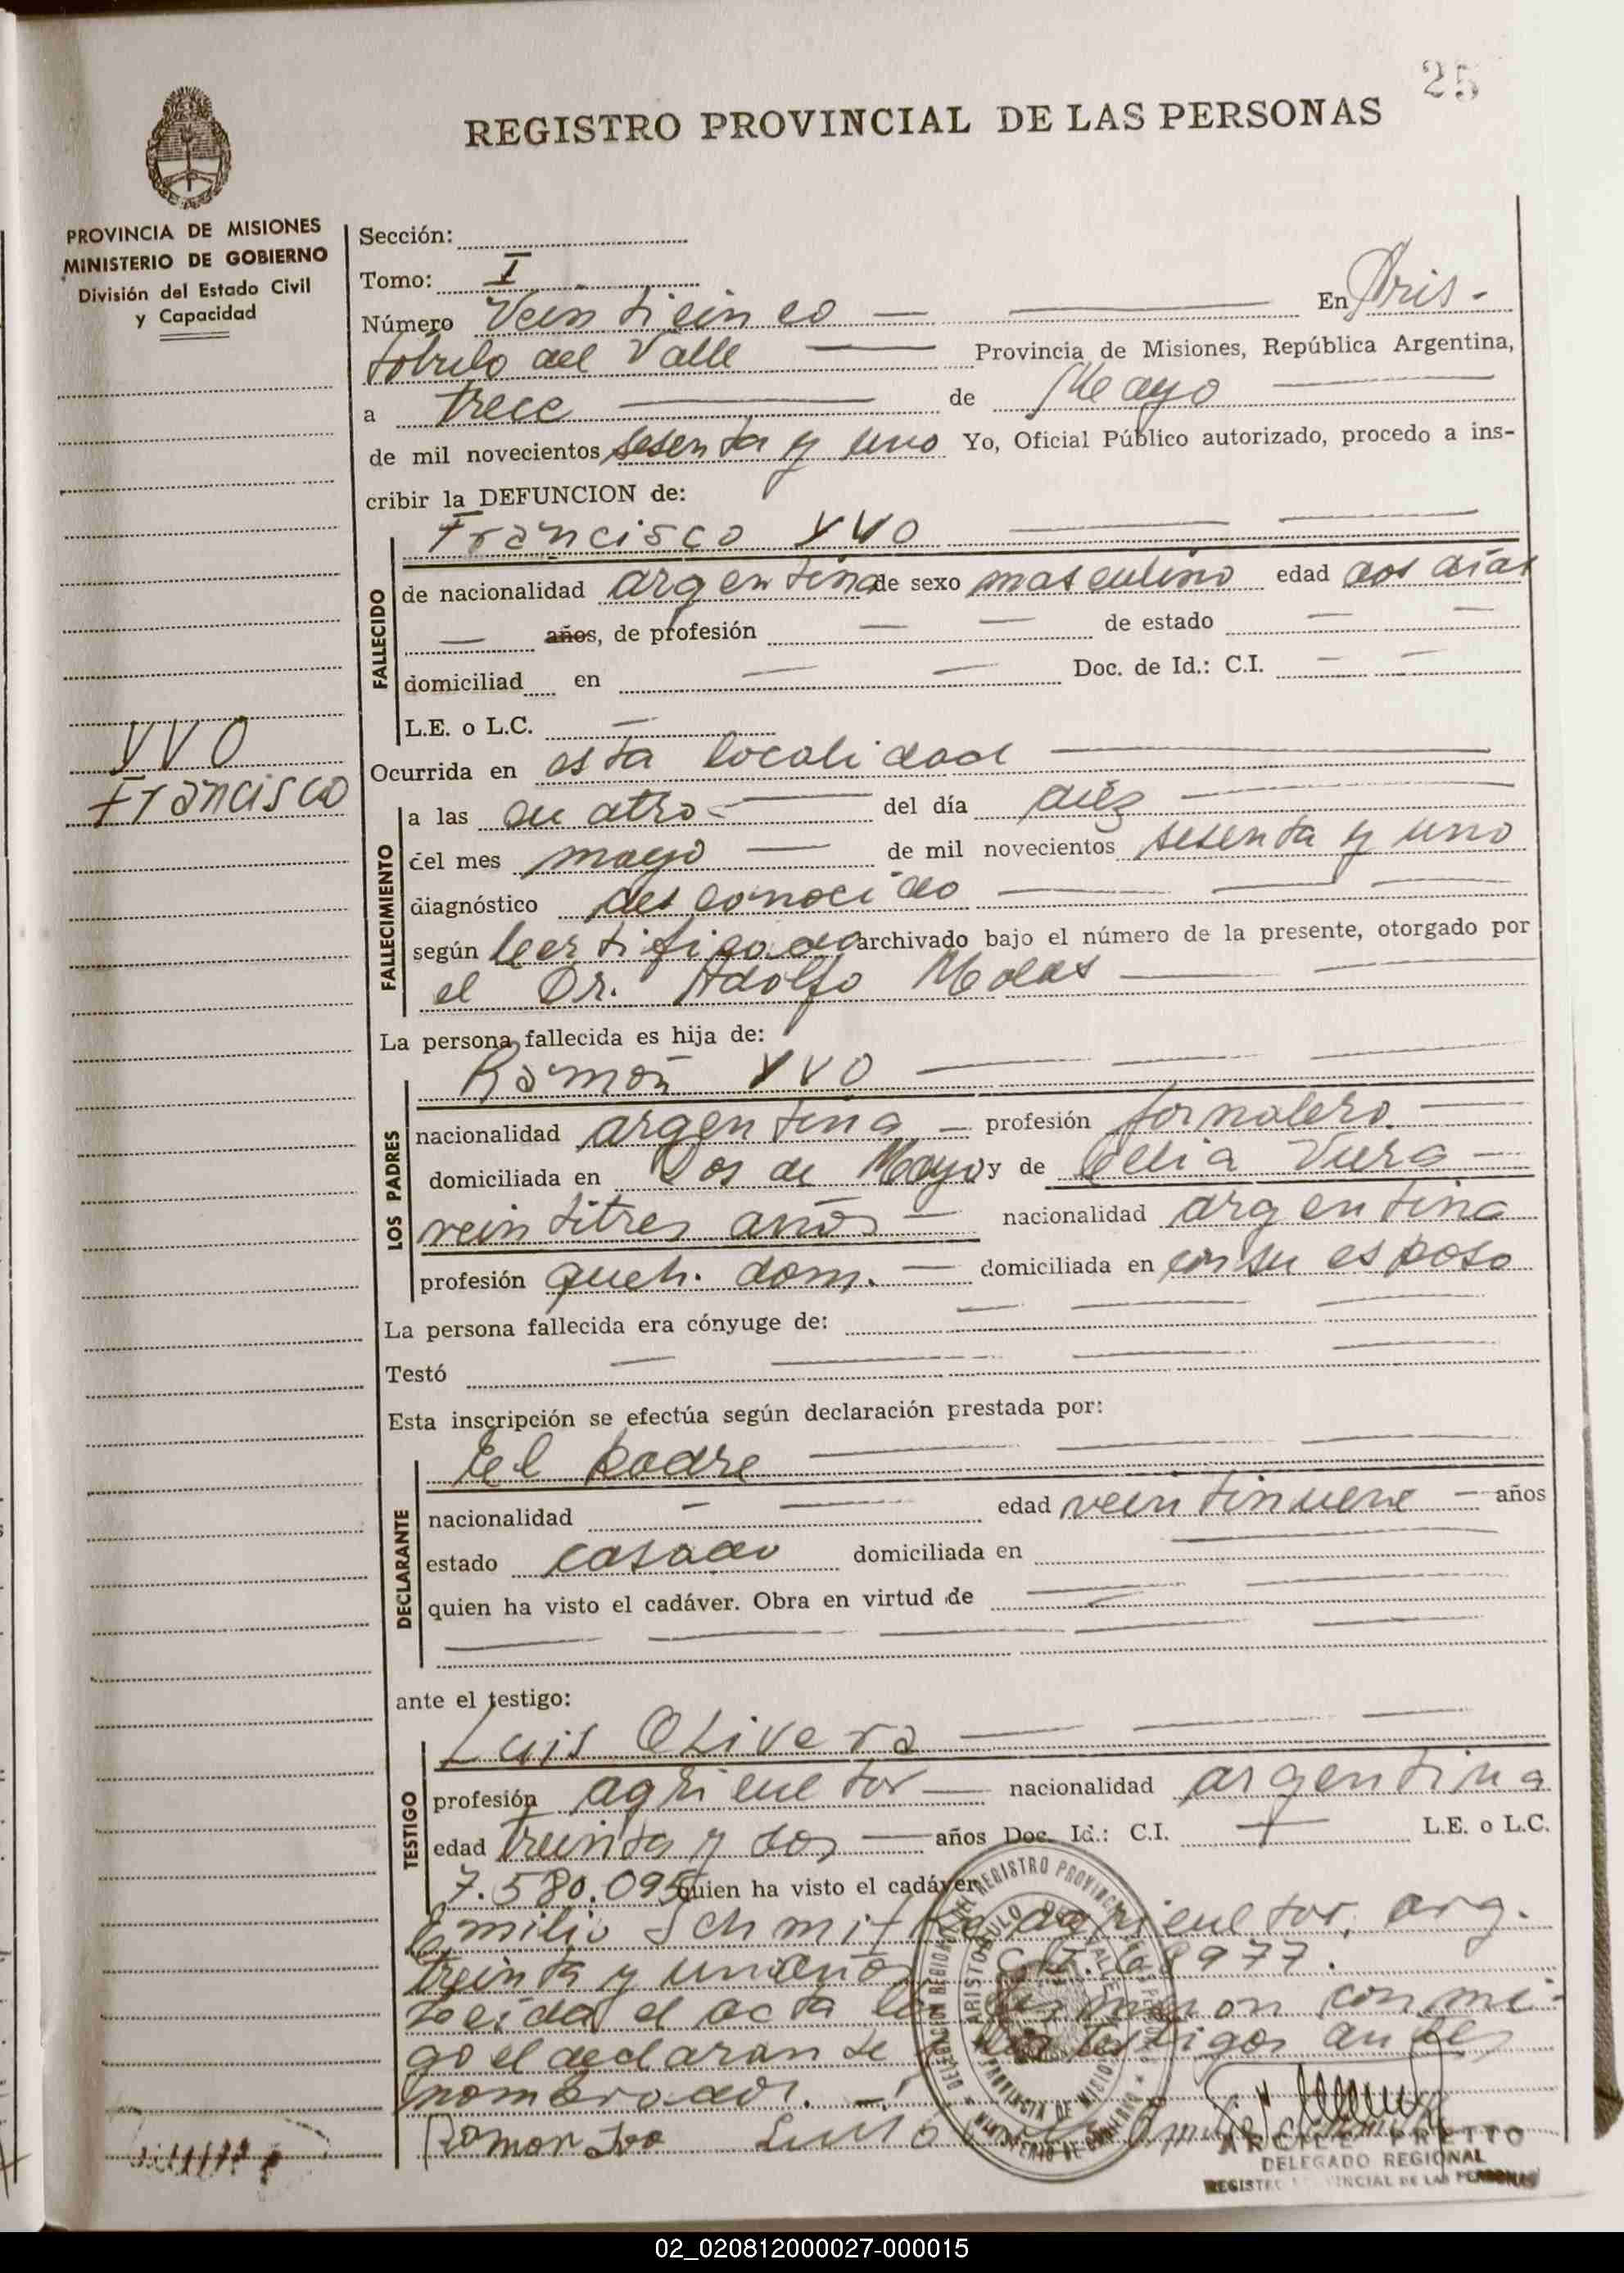 25
REGISTRO PROVINCIAL DE LAS PERSONAS
PROVINCIA DE MISIONES
MINISTERIO DE GOBIERNO
División del Estado Civil
y Capacidad
Sección:
Tomo: I
Número Veinticinco — — En Aris-
tobulo del Valle — Provincia de Misiones, República Argentina,
a trece — de Mayo —
de mil novecientos sesenta y uno Yo, Oficial Público autorizado, procedo a ins-
cribir la DEFUNCION de:
Francisco YVO — —
FALLECIDO
de nacionalidad argentina de sexo masculino edad dos días
— años, de profesión — — de estado — —
domiciliad en — — Doc. de Id.: C.I. — —
L.E. o L.C. —
YVO
Francisco
Ocurrida en esta localidad —
FALLECIMIENTO
a las cuatro — del día diez —
del mes mayo — de mil novecientos sesenta y uno
diagnóstico desconocido — — —
según certificado archivado bajo el número de la presente, otorgado por
el Dr. Adolfo — —
La persona fallecida es hija de:
Ramón YVO — — —
LOS PADRES
nacionalidad argentina — profesión jornalero. —
domiciliada en Dos de Mayo y de Celia —
veintitres años — nacionalidad argentina
profesión queh. dom. — domiciliada en con su esposo
La persona fallecida era cónyuge de: — — —
Testó — — — —
Esta inscripción se efectúa según declaración prestada por:
El padre — — —
DECLARANTE
nacionalidad — — edad veintinueve — años
estado casado domiciliada en —
quien ha visto el cadáver. Obra en virtud de — — —
— — — — —
ante el testigo:
Luis Olivera — — —
TESTIGO
profesión agricultor — nacionalidad argentina
edad treinta y dos — años Doc. Id.: C.I. — L.E. o L.C.
7.580.095 quien ha visto el cadáver
Emilio agricultor, arg.
treinta y un años C.I. 68977.
Leída el acta la firmaron conmi-
go el declarante y los testigos antes
nombrados. —
Ramon Ivo Luis
DELEGACION REGIONAL DEL REGISTRO PROVINCIAL DE LAS PERSONAS
ARISTOBULO DEL VALLE
PROVINCIA DE MISIONES
MINISTERIO DE GOBIERNO
PRETTO
DELEGADO REGIONAL
REGISTRO PROVINCIAL DE LAS PERSONAS
02_020812000027-000015